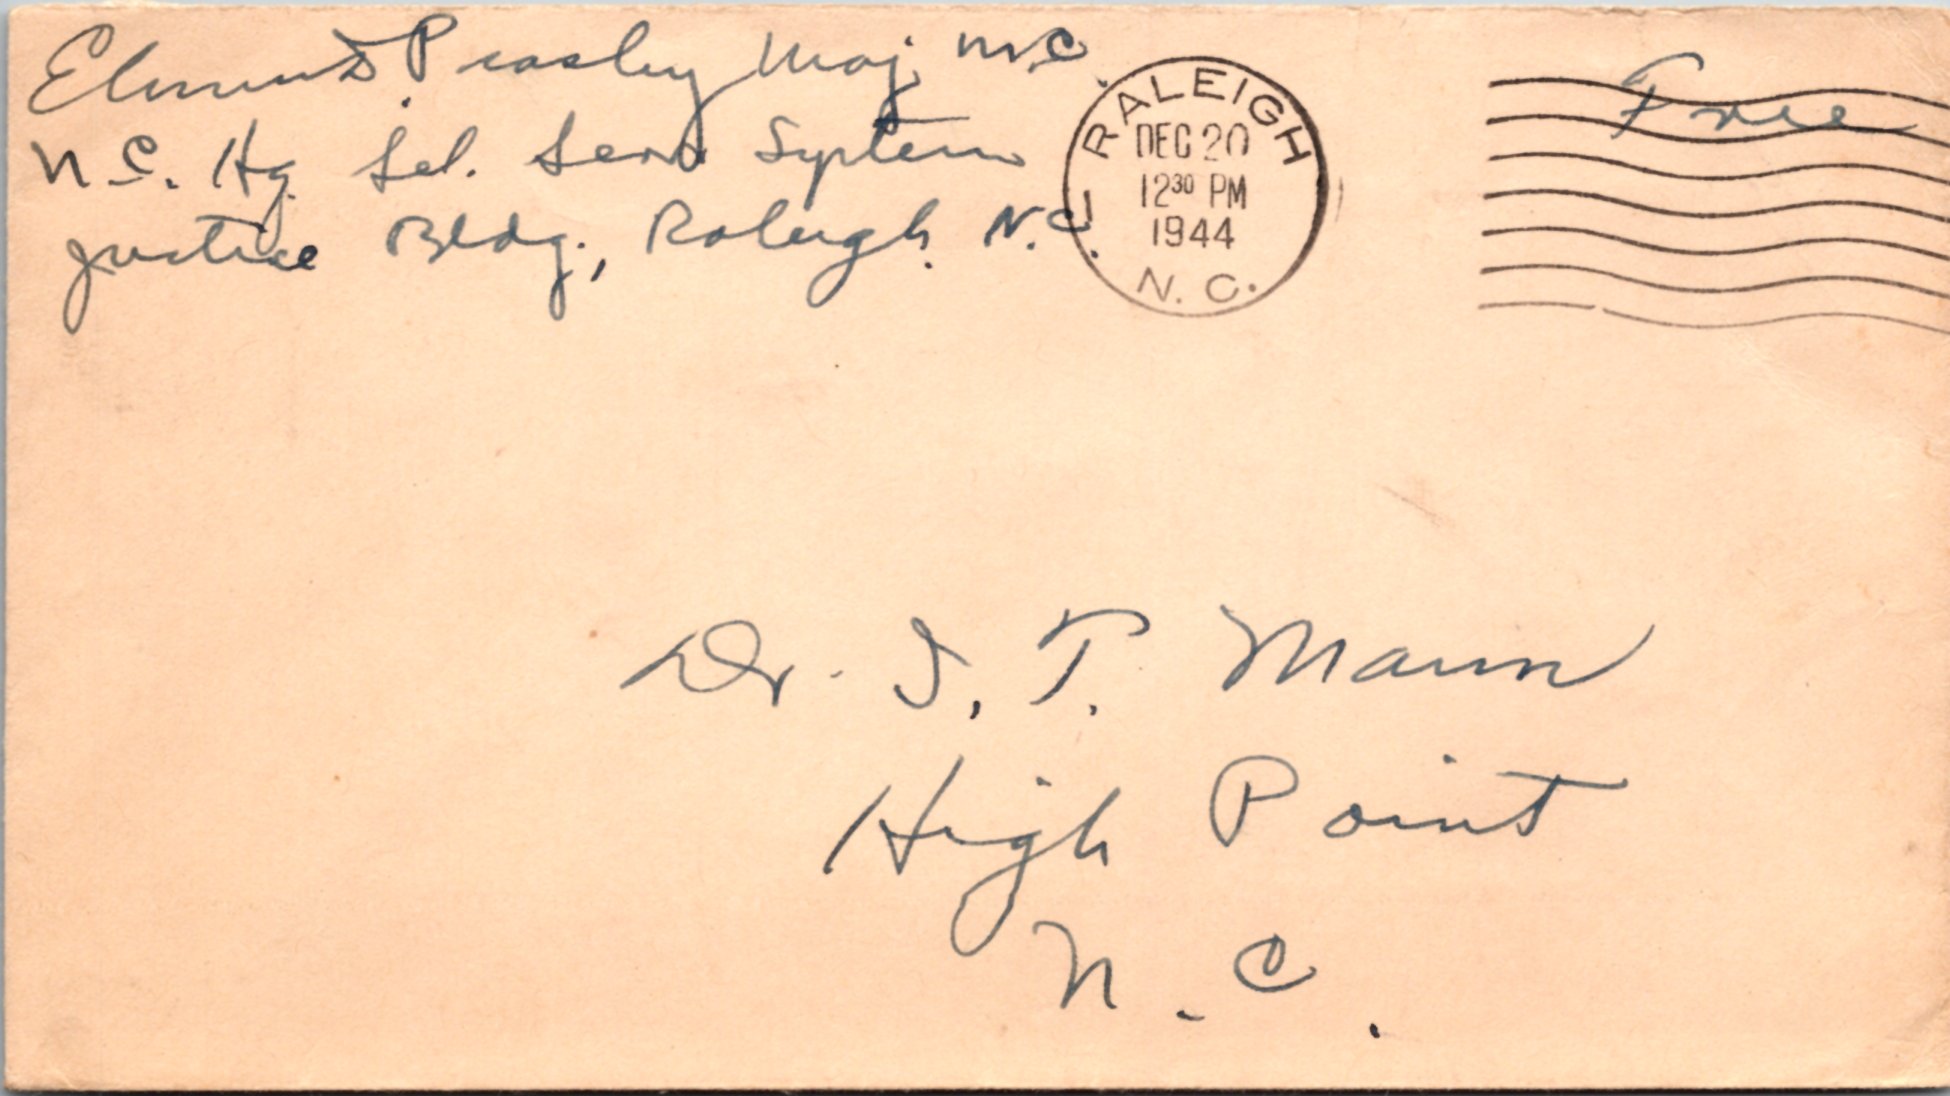 Elmus D. Peasley Maj. M.C.
N.C. Hq. Sel. Serv System
Justice Bldg., Raleigh. N.C.
RALEIGH
DEC 20
12 30 PM
1944
N. C.
Free
Dr. I. T. Mann
High Point
N. C.